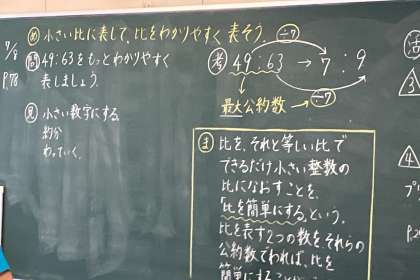 7/8
P.78
め 小さい比に表して、比をわかりやすく表そう。
問 49:63をもっとわかりやすく
表しましょう。
見 小さい数字にする
約分
わっていく。
÷7
考 49:63 → 7:9
÷7
最大公約数
ま 比を、それと等しい比で
できるだけ小さい整数の
比になおすことを、
「比を簡単にする」という。
比を表す2つの数をそれらの
公約数でわれば、比を
簡単にすることが
活
3
4